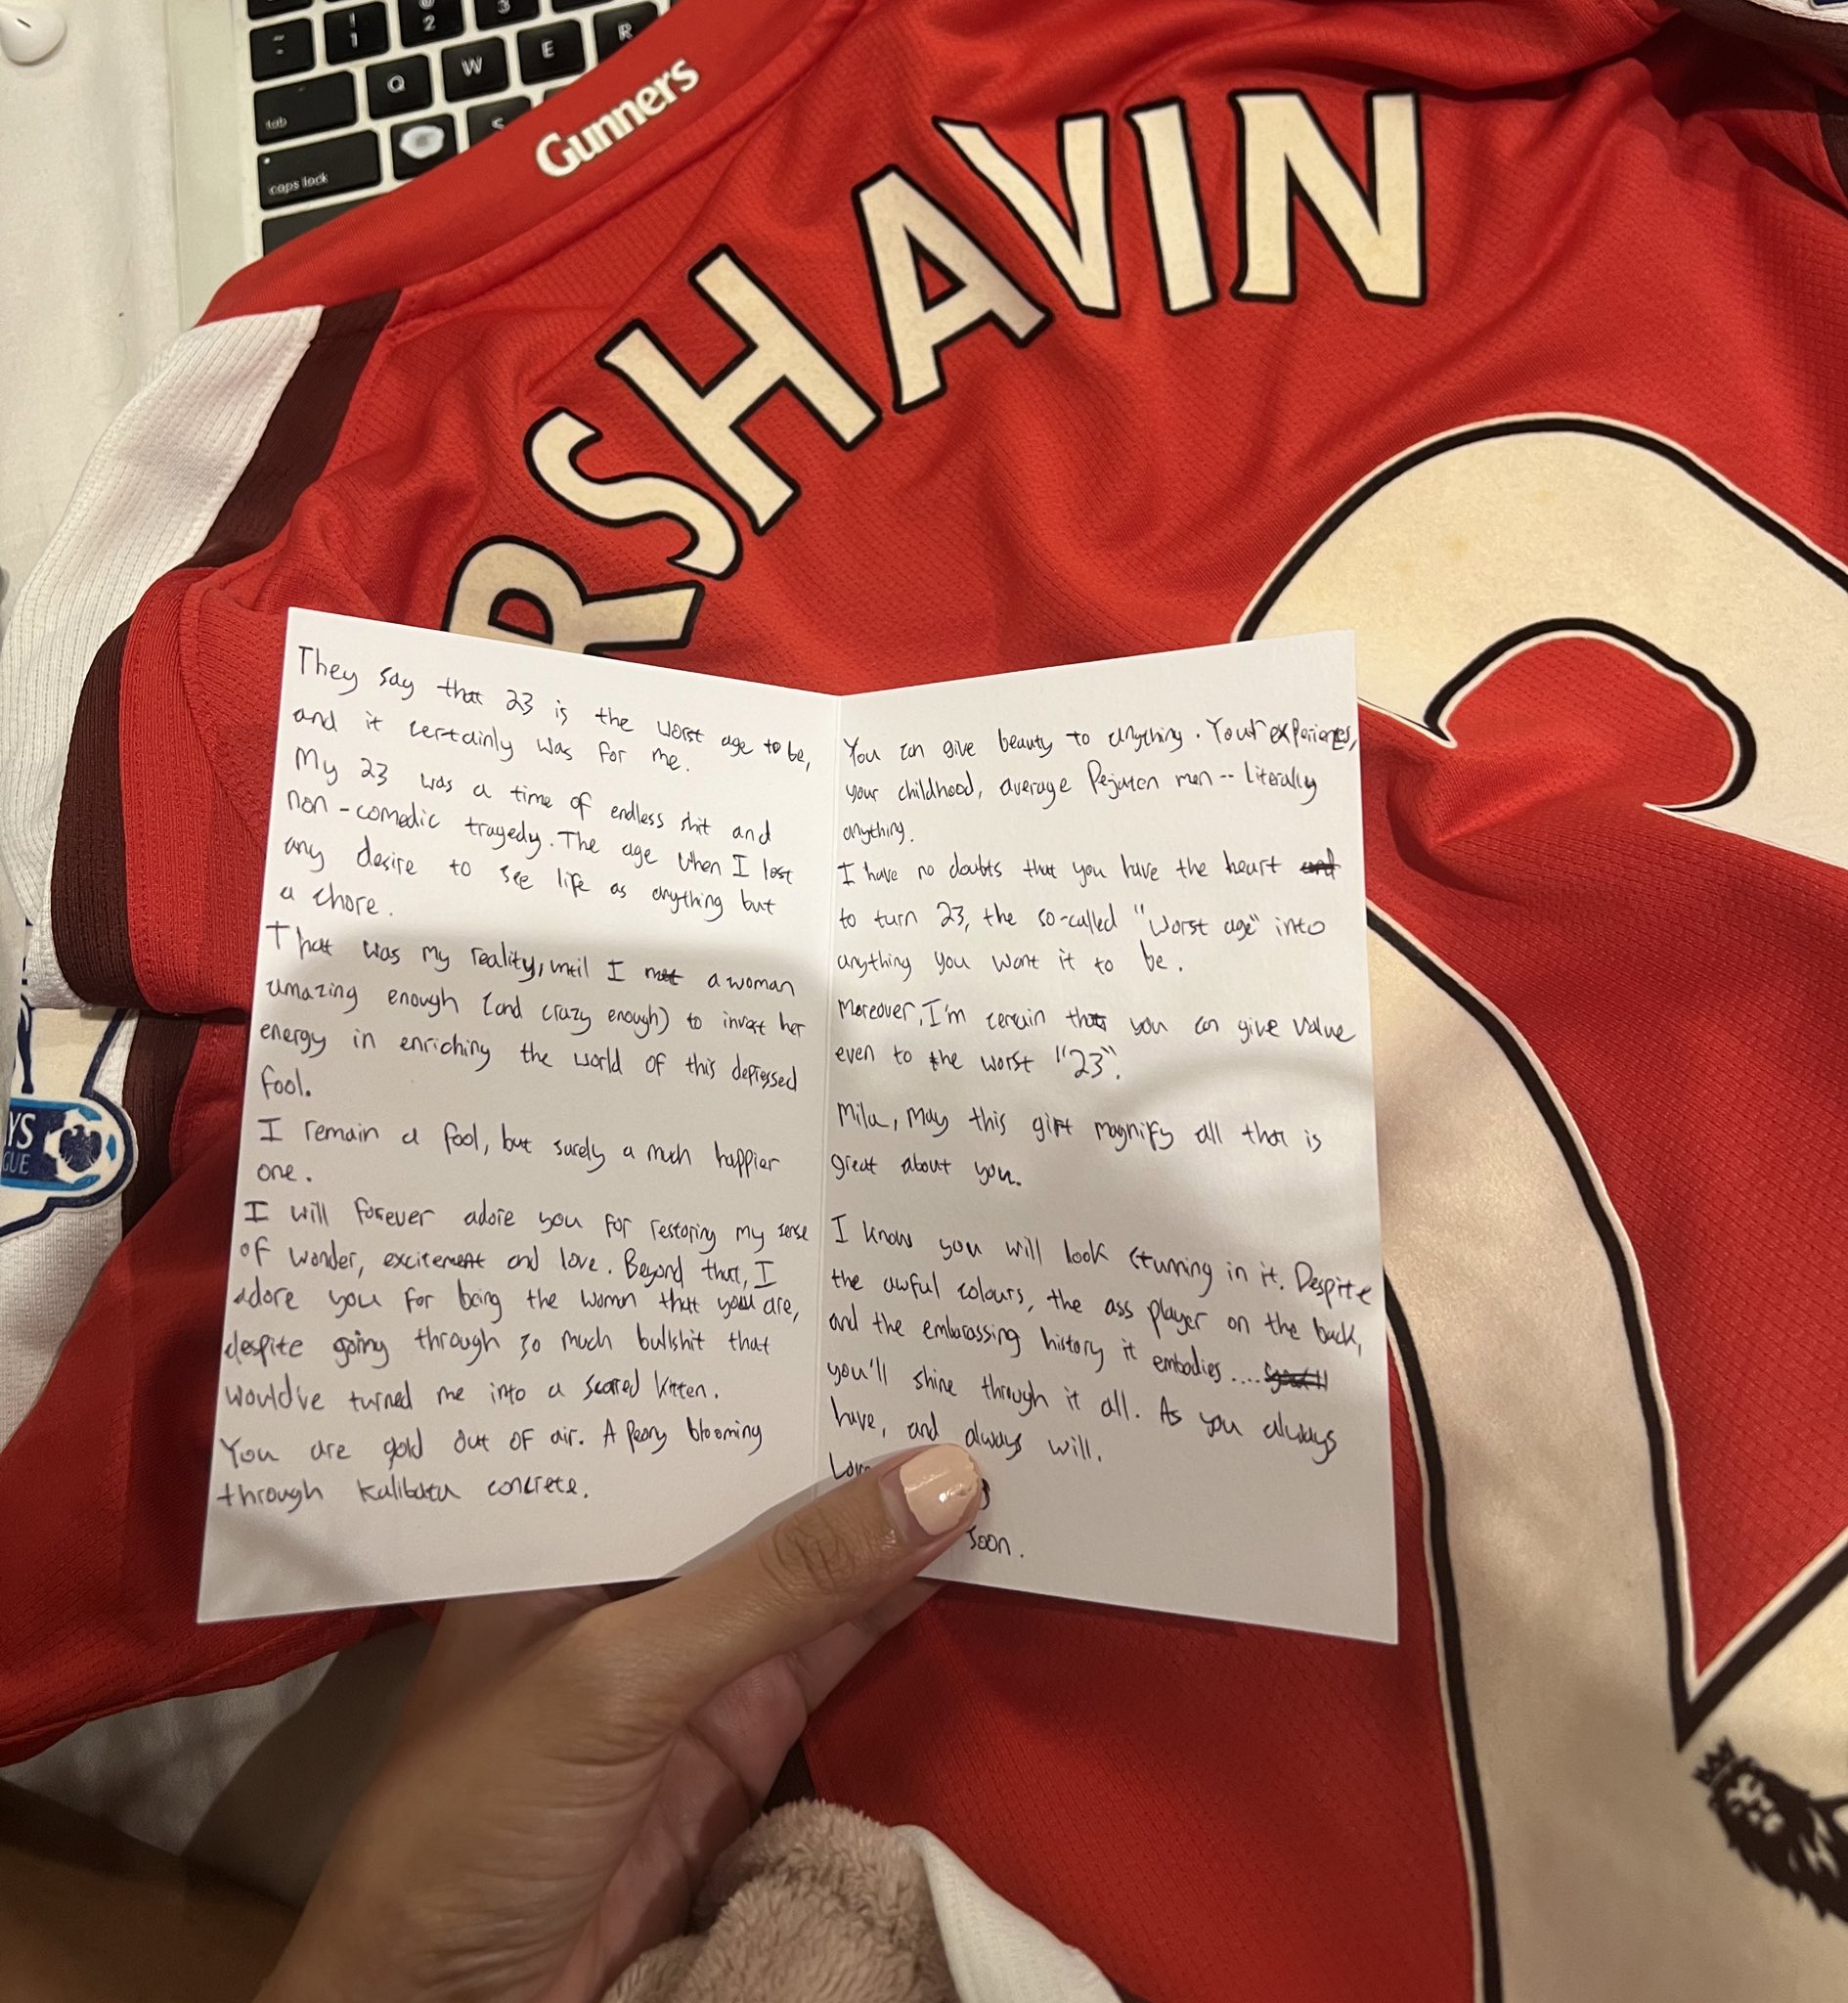 ~
!
1
@
2
3
tab
Q
W
E
R
caps lock
S
Gunners
RSHAVIN
2
YS
GUE
They say that 23 is the worst age to be,
and it certainly was for me.
My 23 was a time of endless shit and
non-comedic tragedy. The age when I lost
any desire to see life as anything but
a chore.
That was my reality, until I met a woman
amazing enough (and crazy enough) to invest her
energy in enriching the world of this depressed
fool.
I remain a fool, but surely a much happier
one.
I will forever adore you for restoring my sense
of wonder, excitement and love. Beyond that, I
adore you for being the woman that you are,
despite going through so much bullshit that
would've turned me into a scared kitten.
You are gold out of air. A Peony blooming
through Kalibata concrete.
You can give beauty to anything. Your experiences,
your childhood, average Pejaten men -- literally
anything.
I have no doubts that you have the heart and
to turn 23, the so-called "worst age" into
anything you want it to be.
Moreover, I'm certain that you can give value
even to the worst "23".
Mila, may this gift magnify all that is
great about you.
I know you will look stunning in it. Despite
the awful colours, the ass player on the back,
and the embarassing history it embodies....
you'll shine through it all. As you always
have, and always will.
Soon.